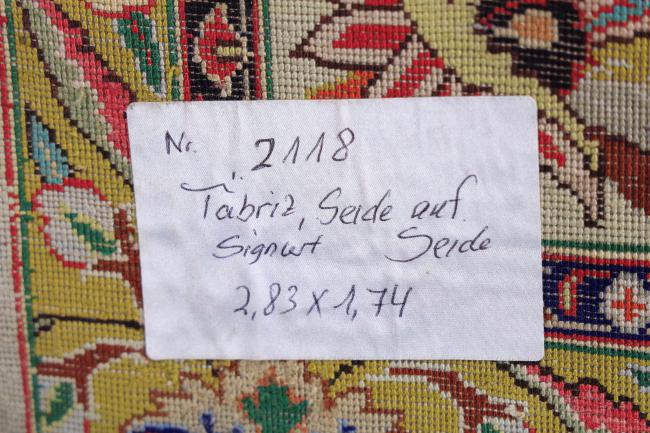 Nr. 2118
Täbriz, Seide auf
Signiert Seide
2,83 x 1,74